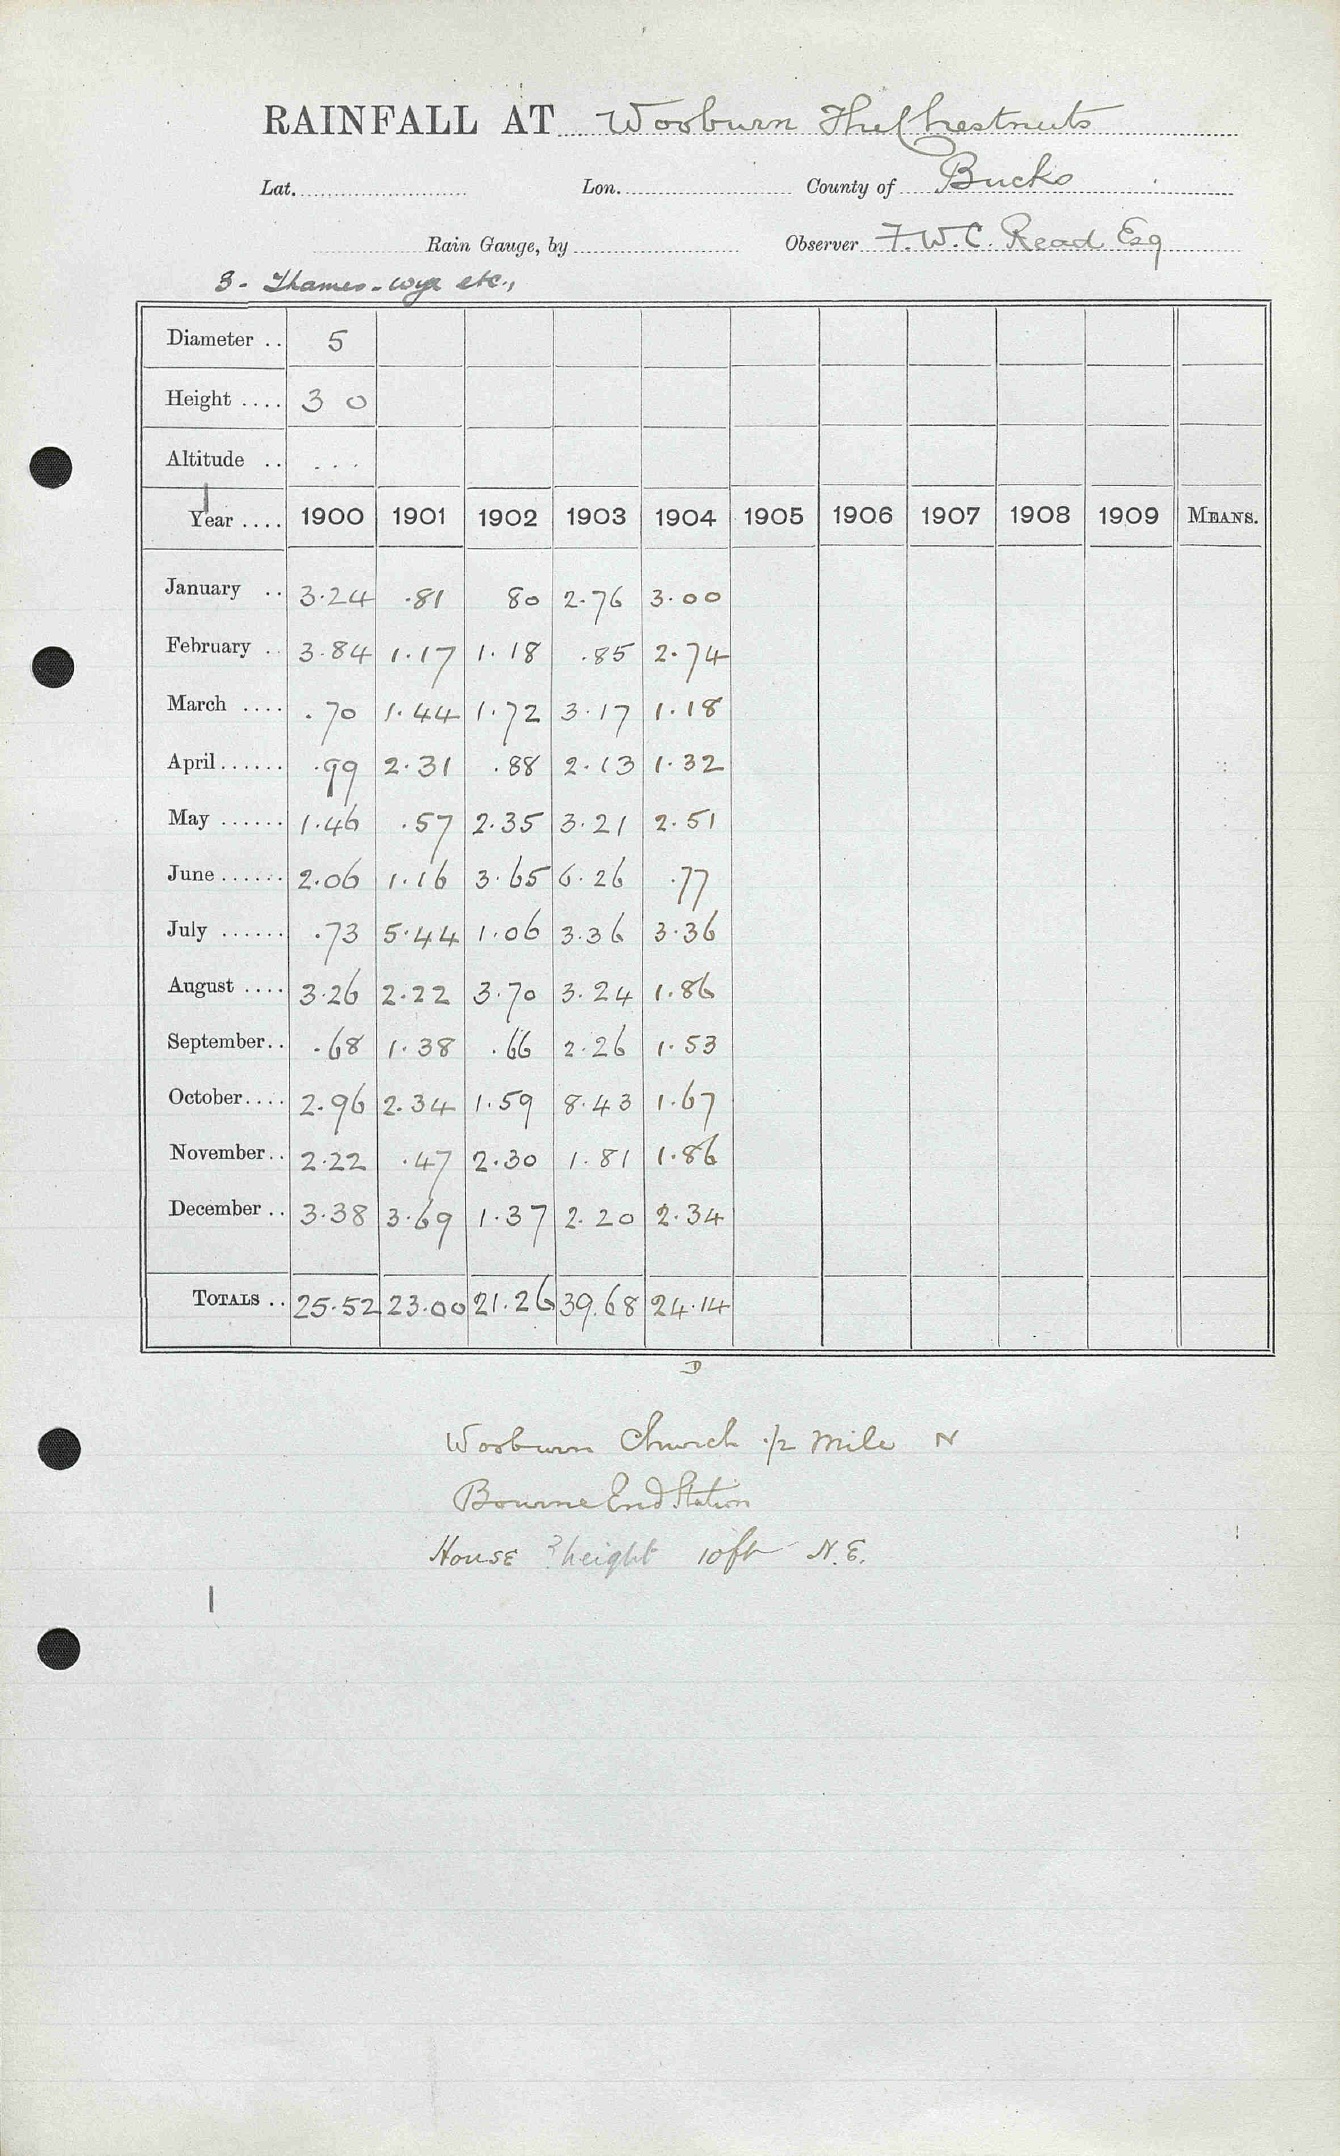 RAINFALL AT Wooburn The Chestnuts
Lat. Lon. County of Bucks
Rain Gauge, by Observer F. W. C. Read Esq
3. Thames - Wye etc.,
Diameter .. 5
Height .... 3 0
Altitude .. ...
Year .... 1900 1901 1902 1903 1904 1905 1906 1907 1908 1909 MEANS.
January .. 3.24 .81 80 2.76 3.00
February .. 3.84 1.17 1.18 .85 2.74
March .... .70 1.44 1.72 3.17 1.18
April ...... .99 2.31 .88 2.13 1.32
May ...... 1.46 .57 2.35 3.21 2.51
June ...... 2.06 1.16 3.65 6.26 .77
July ...... .73 5.44 1.06 3.36 3.36
August .... 3.26 2.22 3.70 3.24 1.86
September .. .68 1.38 .66 2.26 1.53
October .... 2.96 2.34 1.59 8.43 1.67
November .. 2.22 .47 2.30 1.81 1.86
December .. 3.38 3.69 1.37 2.20 2.34
TOTALS .. 25.52 23.00 21.26 39.68 24.14
D
Wooburn Church 1/2 Mile N
Bourne End Station
House ? height 10 ft N.E.